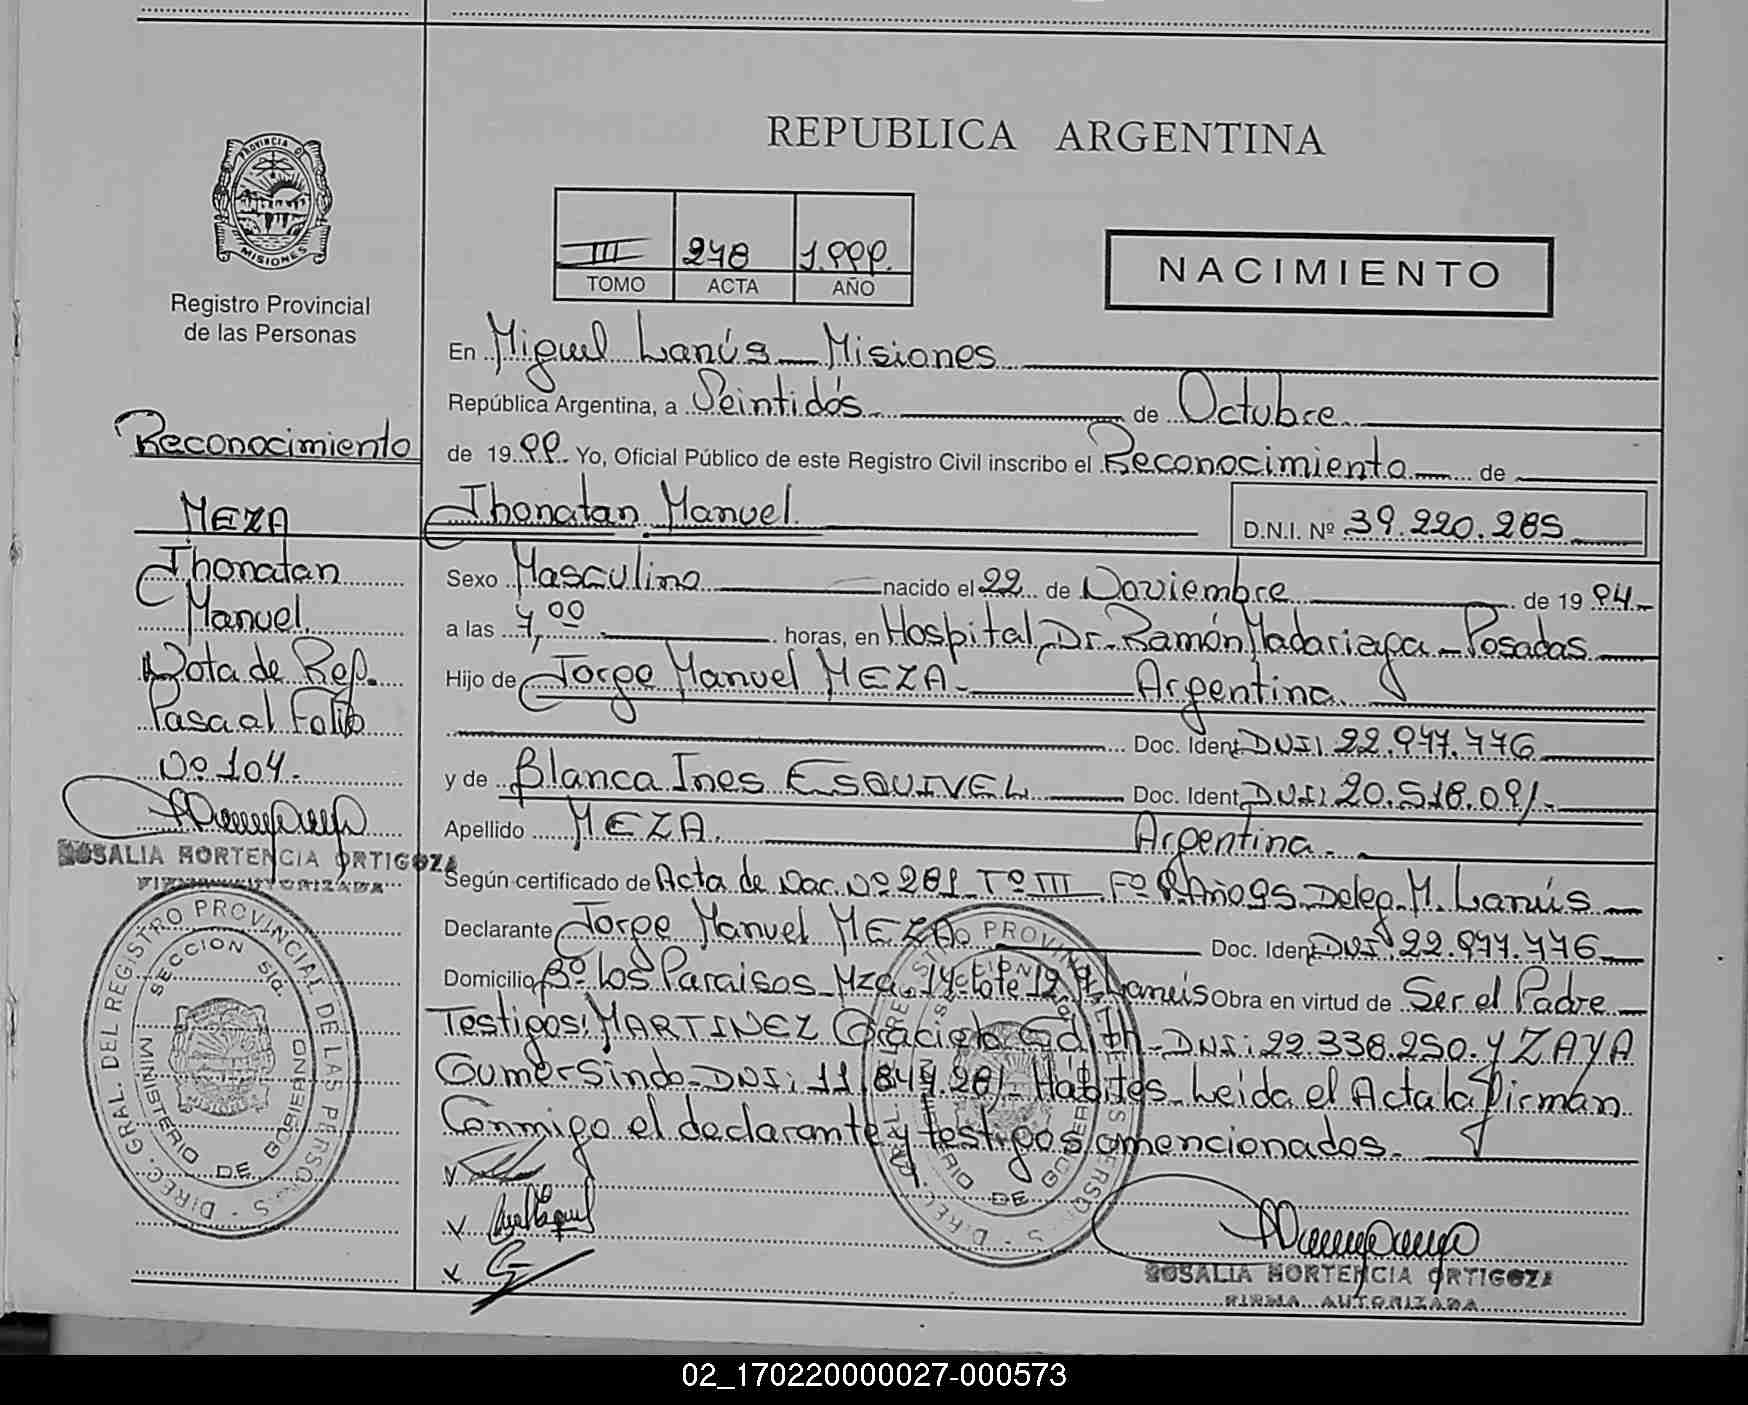 REPUBLICA ARGENTINA
PROVINCIA D MISIONES
Registro Provincial
de las Personas
III 248 1.999.
TOMO ACTA AÑO
NACIMIENTO
En Miguel Lanús - Misiones
República Argentina, a Veintidós de Octubre
de 1999 Yo, Oficial Público de este Registro Civil inscribo el Reconocimiento de
Jhonatan Manuel D.N.I. Nº 39.220.285
Sexo Masculino nacido el 22 de Noviembre de 1994.-
a las 7,00 horas, en Hospital Dr. Ramón Madariaga - Posadas
Hijo de Jorge Manuel MEZA - Argentina
Doc. Ident DNI: 22.977.776
y de Blanca Ines ESQUIVEL Doc. Ident DNI: 20.518.091.-
Apellido MEZA. Argentina.
Según certificado de Acta de Nac. Nº 281 Tº III Fº Año 95 Deleg. M. Lanús
Declarante Jorge Manuel MEZA Doc. Iden DNI 22.977.776
Domicilio Bº Los Paraisos - Mza. 14 - Lote 12 Lanús Obra en virtud de Ser el Padre
Testigos: MARTINEZ Graciela Edith - DNI: 22.338.250. y ZAYA
Gumersindo - DNI: 11.847.281 - Hábiles - Leida el Acta la firman
Conmigo el declarante y testigos mencionados.
Reconocimiento
MEZA
Jhonatan
Manuel
Nota de Ref.
Pasa al Folio
Nº 104.
ROSALIA HORTENCIA ORTIGOZA
FIRMA AUTORIZADA
DIREC. GRAL. DEL REGISTRO PROVINCIAL DE LAS PERSONAS
SECCION
MINISTERIO DE GOBIERNO
ROSALIA HORTENCIA ORTIGOZA
FIRMA AUTORIZADA
02_170220000027-000573